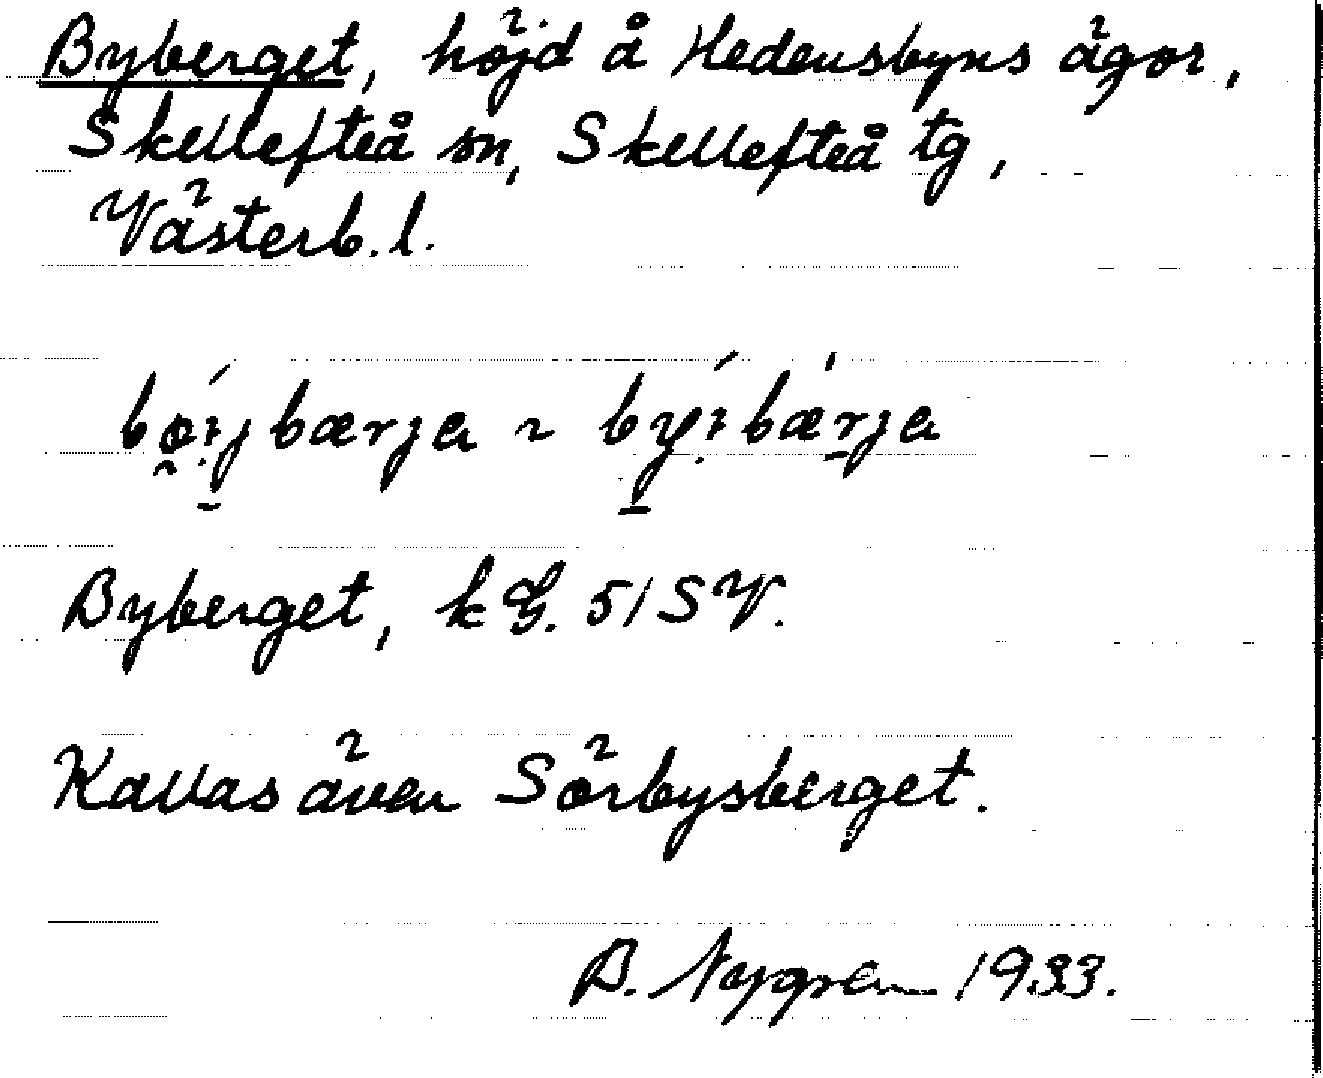 Byberget, höjd å Hedensbyns ägor,
Skellefteå sn, Skellefteå tg,
Västerb. l.
bø̰íy̮bærja ~ by̱íbæ̍rja
Byberget, kG. 51 SV.
Kallas även Sörbysberget.
B. Nygren 1933.